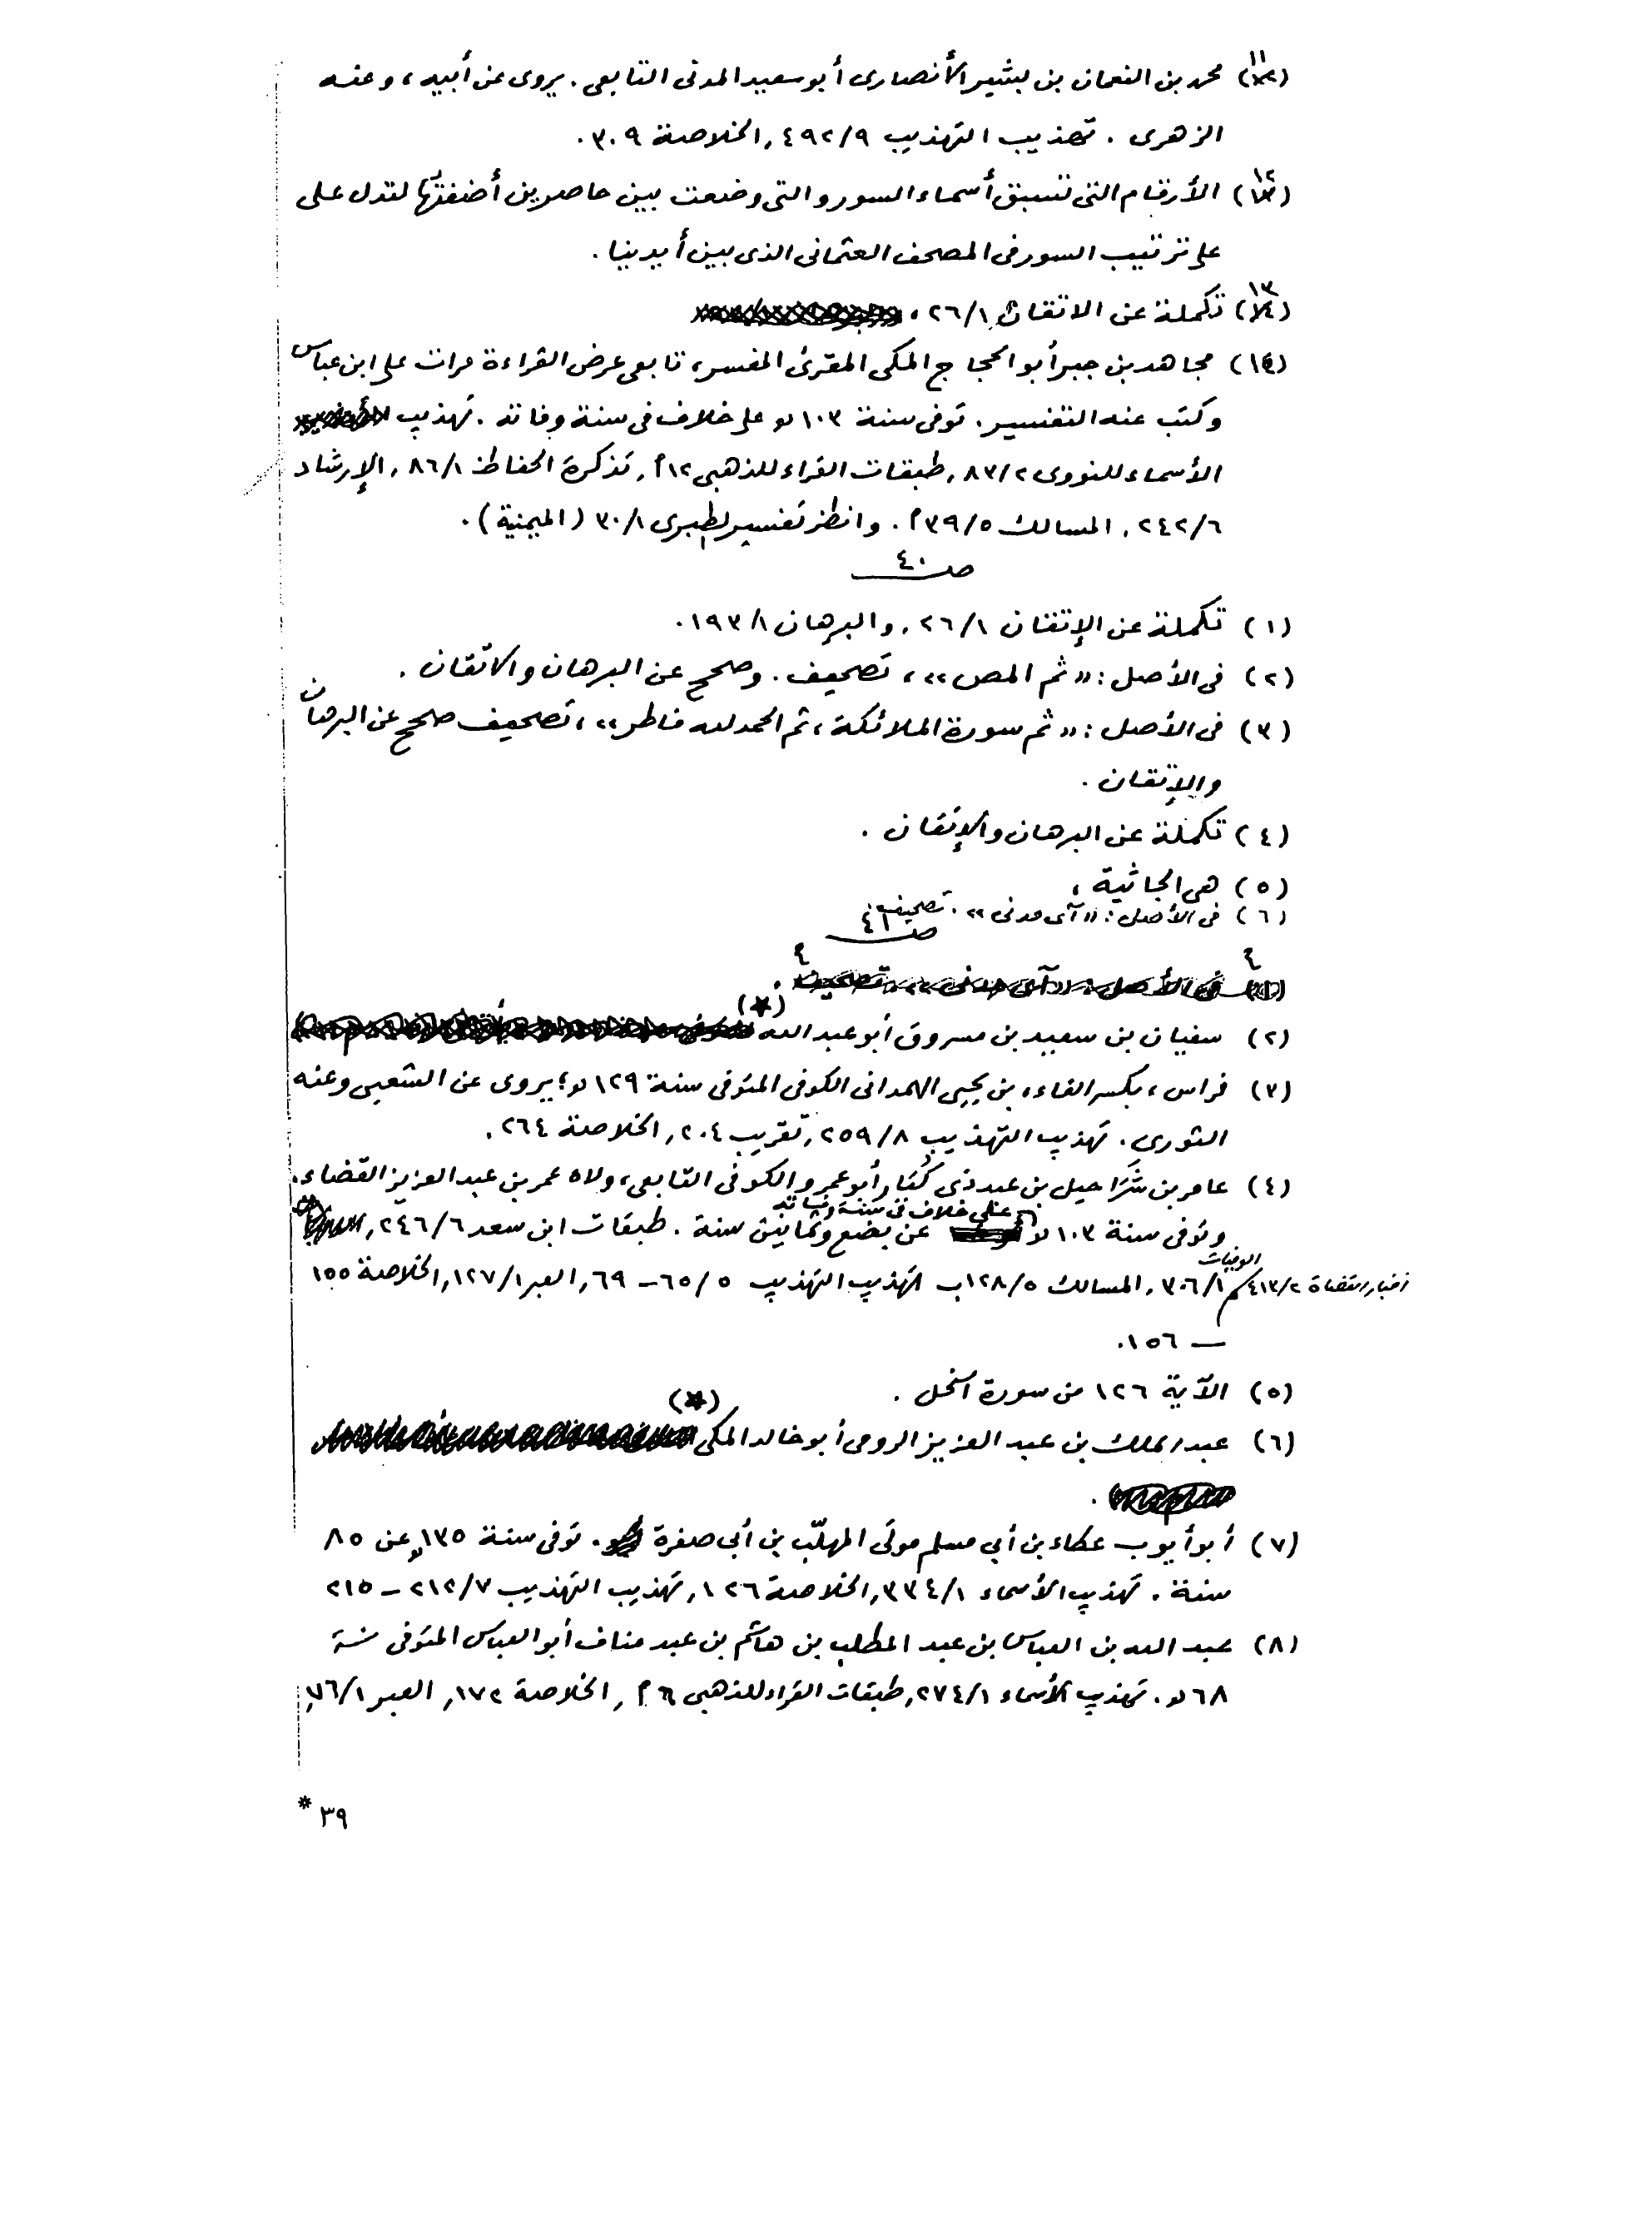 (١١) محمد بن النعمان بن بشير الأنصارى أبو سعيد المدنى التابعى. يروى عن أبيه، وعنه
الزهرى. تهذيب التهذيب ٤٩٢/٩، الخلاصة ٣٠٩.
(١٢) الأرقام التى تسبق أسماء السور والتى وضعت بين حاصرين أضفتُها لتدل على
على ترتيب السور فى المصحف العثمانى الذى بين أيدينا.
(١٣) تكملة عن الاتقان ٢٦/١.
(١٤) مجاهد بن جبر أبو الحجاج المكى المقرئ المفسر، تابعى عرض القراءة مرات على ابن عباس
وكتب عنه التفسير. توفى سنة ١٠٣ هـ على خلاف فى سنة وفاته. تهذيب
الأسماء للنووى ٨٣/٢، طبقات القراء للذهبى ١٢أ، تذكرة الحفاظ ٨٦/١، الإرشاد
٢٤٢/٦، المسالك ٣٩/٥أ. وانظر تفسير الطبرى ٣٠/١ (الميمنية).
صـ ٤٠
(١) تكملة عن الإتقان ٢٦/١، والبرهان ١٩٣/١.
(٢) فى الأصل: «ثم المص»، تصحيف. وصحح عن البرهان والاتقان.
(٣) فى الأصل: «ثم سورة الملائكة، ثم الحمد لله فاطر»، تصحيف صحح عن البرهان
والإتقان.
(٤) تكملة عن البرهان والإتقان.
(٥) هى الجاثية،
(٦) فى الأصل: «آى مدنى». تصحيف
صـ ٤١
(٢) سفيان بن سعيد بن مسروق أبو عبد الله (*)
(٣) فراس، بكسر الفاء، بن يحيى الهمدانى الكوفى المتوفى سنة ١٢٩ هـ؛ يروى عن الشعبى وعنه
الثورى. تهذيب التهذيب ٢٥٩/٨، تقريب ٢٠٤، الخلاصة ٢٦٤.
(٤) عامر بن شَرَاحيل بن عبد ذى كُبَار أبو عمرو الكوفى التابعى، ولاه عمر بن عبد العزيز القضاء.
وتوفى سنة ١٠٣ هـ على خلاف فى سنة وفاته عن بضع وثمانين سنة. طبقات ابن سعد ٢٤٦/٦،
أخبار القضاة ٤١٣/٢ الوفيات ٣٠٦/١، المسالك ١٢٨/٥ب تهذيب التهذيب ٦٥/٥ - ٦٩، العبر ١٢٧/١، الخلاصة ١٥٥
— ١٥٦.
(٥) الآية ١٢٦ من سورة النحل.
(٦) عبد الملك بن عبد العزيز الرومى أبو خالد المكى (*)
(٧) أبو أيوب عطاء بن أبي مسلم مولَى المهلّب بن أبى صفرة. توفى سنة ١٣٥ هـ عن ٨٥
سنة. تهذيب الأسماء ٣٣٤/١، الخلاصة ١٢٦، تهذيب التهذيب ٢١٢/٧ - ٢١٥
(٨) عبد الله بن العباس بن عبد المطلب بن هاشم بن عبد مناف أبو العباس المتوفى سنة
٦٨ هـ. تهذيب الأسماء ٢٧٤/١، طبقات القراء للذهبى ٦أ، الخلاصة ١٧٢، العبر ٧٦/١،
٣٩ *